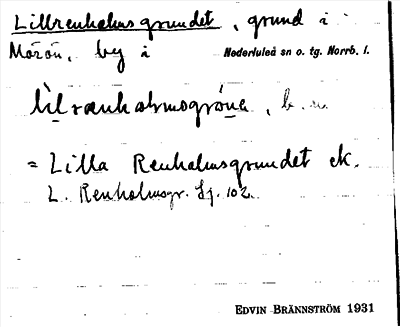 Lillrenholmsgrundet, grund i
Mörön, by i Nederluleå sn o. tg. Norrb. l.
= Lilla Renholmsgrundet ek.
L. Renholmsgr. Sj. 102.
EDVIN BRÄNNSTRÖM 1931